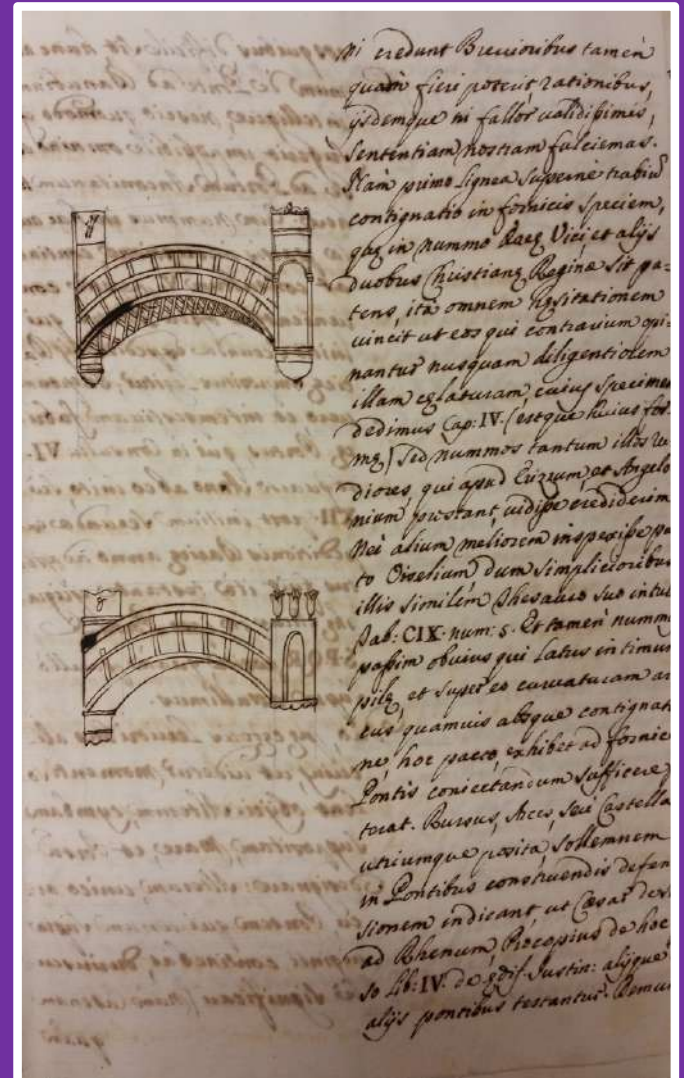 ni credunt Breuioribus tamen
quam fieri poterit rationibus,
ijsdemque ni fallor ualidissimis,
sententiam nostram fulciemus.
Nam primo Lignea superne trabiū
contignatio in fornicis speciem,
quę in nummo Dacię Vici et alijs
duobus Christianę Reginę sit pa-
tens, ità omnem hęsitationem
uincit ut eos qui contrarium opi-
nantur nusquam diligentiorem
illam cęlaturam, cuius specimen
dedimus Cap: IV. (estque huius for-
mę) sed nummos tantum illos
diores, qui apud Erizzum, et Angelo
nium prostant, uidisse crediderim
Nec alium meliorem inspexisse pu
to Oiselium, dum simplicioribus
illis similem Thesauro suo intu
Tab: CIX. num: 5. Et tamen nummu
passim obuius qui Latus intimum
pilę, et super eo curuaturam ar
cus quamuis absque contignat
ne, hoc pacto, exhibet ad fornic
Pontis coniectandum sufficere
terat. Rursus, Arces, seù Castella
utrumque posita, sollemnem
in Pontibus construendis defen
sionem indicant, ut Cæsar de
ad Rhenum, Procopius de hoc
so Lib: IV. de ędif. Justin: alijque
alijs pontibus testantur. Demu